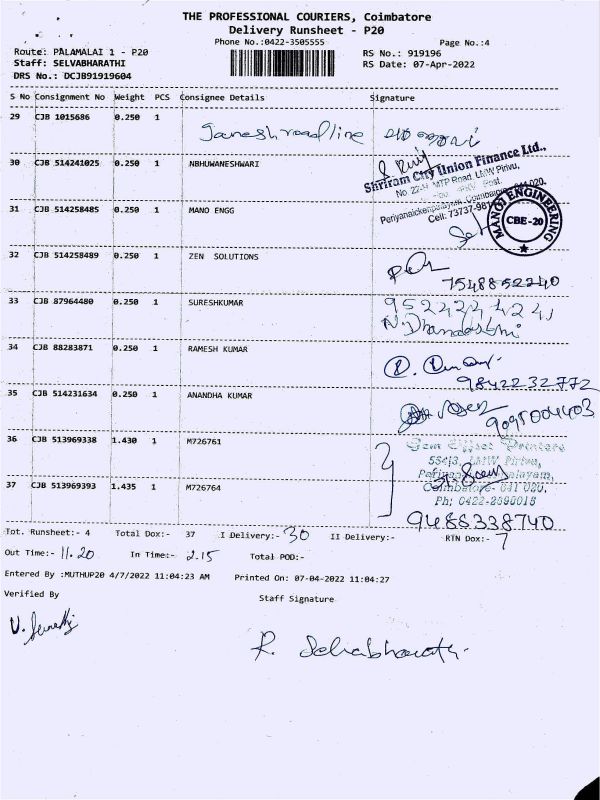 THE PROFESSIONAL COURIERS, Coimbatore
Delivery Runsheet - P20
Phone No.:0422-3505555
Page No.:4
Route: PALAMALAI 1 - P20
RS No.: 919196
Staff: SELVABHARATHI
RS Date: 07-Apr-2022
DRS No.: DCJB91919604
S No Consignment No Weight PCS Consignee Details Signature
29 CJB 1015686 0.250 1 Ganesh roadline
30 CJB 514241025 0.250 1 NBHUWANESHWARI
Shriram City Union Finance Ltd.,
MTP Road, LMW Pirivu,
31 CJB 514258485 0.250 1 MANO ENGG
MANO ENGINEERING
CBE-20
32 CJB 514258489 0.250 1 ZEN SOLUTIONS
7548852240
33 CJB 87964480 0.250 1 SURESHKUMAR
34 CJB 88283871 0.250 1 RAMESH KUMAR
9842232772
35 CJB 514231634 0.250 1 ANANDHA KUMAR
36 CJB 513969338 1.430 1 M726761
Gem Offset Printers
LMW Pirivu,
37 CJB 513969393 1.435 1 M726764
Coimbatore- 641 020.
9488338740
Tot. Runsheet:- 4 Total Dox:- 37 I Delivery:- 30 II Delivery:- RTN Dox:- 7
Out Time:- 11.20 In Time:- 2.15 Total POD:-
Entered By :MUTHUP20 4/7/2022 11:04:23 AM Printed On: 07-04-2022 11:04:27
Verified By
Staff Signature
R. Selvabharathi